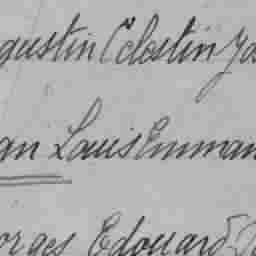 gustin Célestin Jo
an Louis Emman
orges Edouard